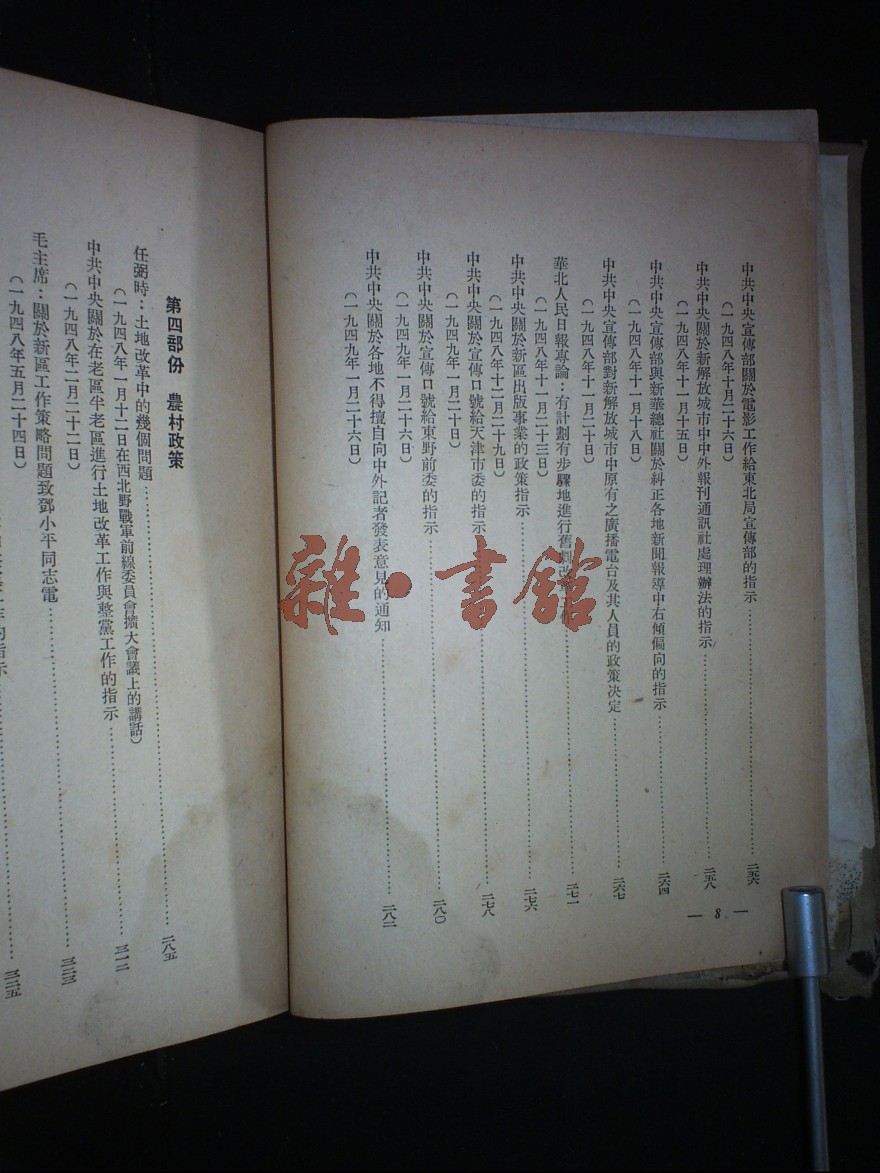 中共中央宣傳部關於電影工作給東北局宣傳部的指示……二五六
(一九四八年十月二十六日)
中共中央關於新解放城市中中外報刊通訊社處理辦法的指示……二五八
(一九四八年十一月十五日)
中共中央宣傳部與新華總社關於糾正各地新聞報導中右傾偏向的指示……二六四
(一九四八年十一月十八日)
中共中央宣傳部對新解放城市中原有之廣播電台及其人員的政策決定……二六七
(一九四八年十一月二十日)
華北人民日報專論：有計劃有步驟地進行舊劇改革工作……二七一
(一九四八年十一月二十三日)
中共中央關於新區出版事業的政策指示……二七六
(一九四八年十二月二十九日)
中共中央關於宣傳口號給天津市委的指示……二七八
(一九四九年一月二十日)
中共中央關於宣傳口號給東野前委的指示……二八〇
(一九四九年一月二十六日)
中共中央關於各地不得擅自向中外記者發表意見的通知……二八二
(一九四九年一月二十六日)
— 8 —
第四部份　農村政策
任弼時：土地改革中的幾個問題……二八五
(一九四八年一月十二日在西北野戰軍前線委員會擴大會議上的講話)
中共中央關於在老區半老區進行土地改革工作與整黨工作的指示……三一二
(一九四八年二月二十二日)
毛主席：關於新區工作策略問題致鄧小平同志電……三二三
(一九四八年五月二十四日)
的指示……三二五
雜·書館